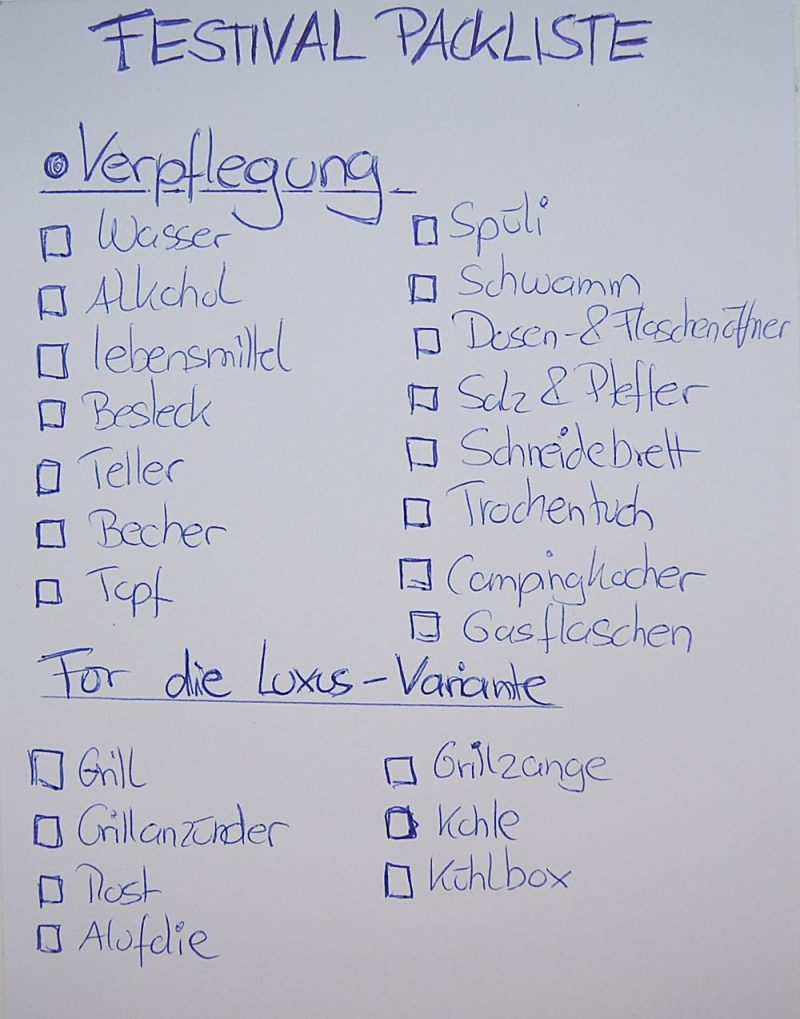 FESTIVAL PACKLISTE
Verpflegung
Wasser
Alkohol
lebensmittel
Besteck
Teller
Becher
Topf
Spüli
Schwamm
Dosen-& Flaschenöffner
Salz & Pfeffer
Schneidebrett
Trockentuch
Campingkocher
Gasflaschen
Für die Luxus-Variante
Grill
Grillanzünder
Rost
Alufolie
Grillzange
Kohle
Kühlbox